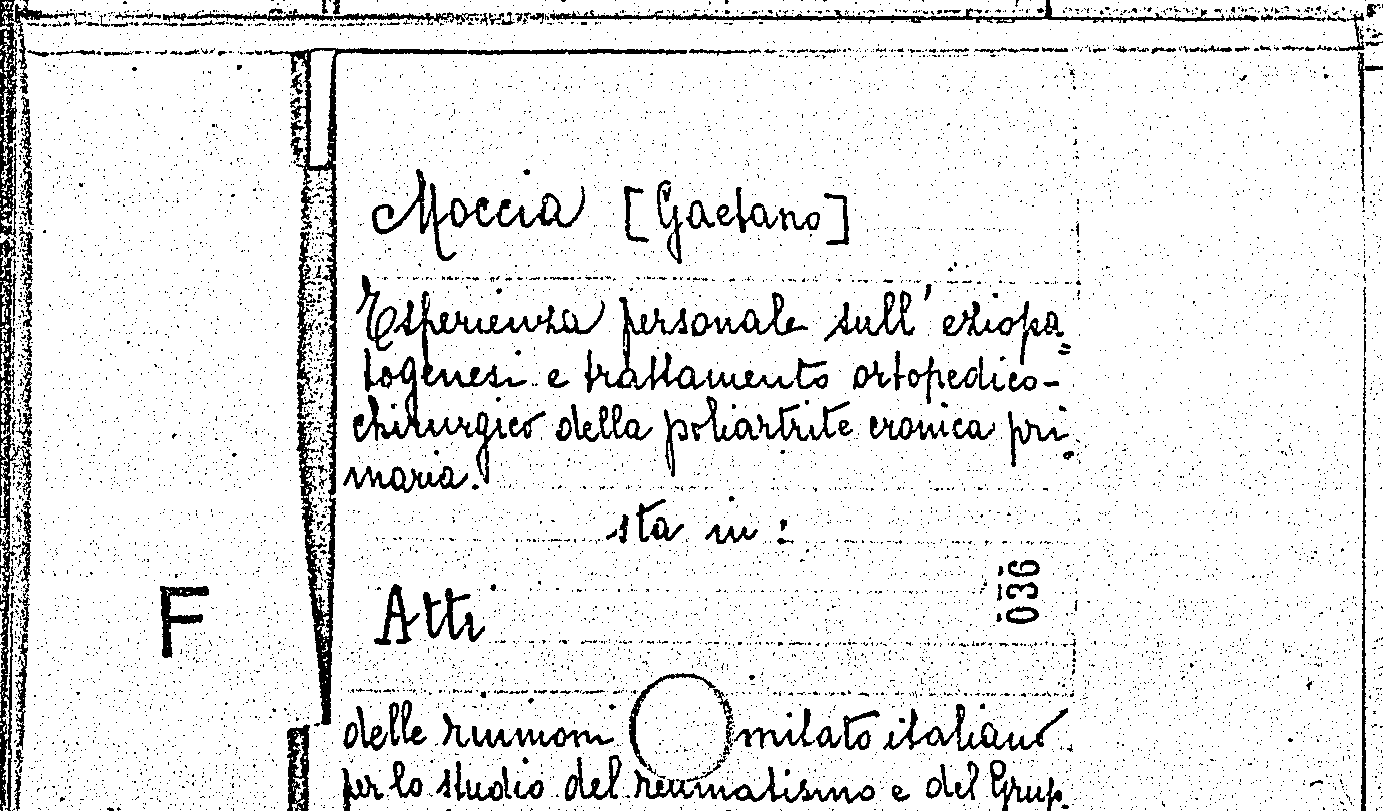 Moccia [Gaetano]
Esperienza personale sull'eziopa=
togenesi e trattamento ortopedico-
chirurgico della poliartrite cronica pri
maria.
sta in :
036
Atti
F
delle riunioni mitato italiano
per lo studio del reumatismo e del Grup